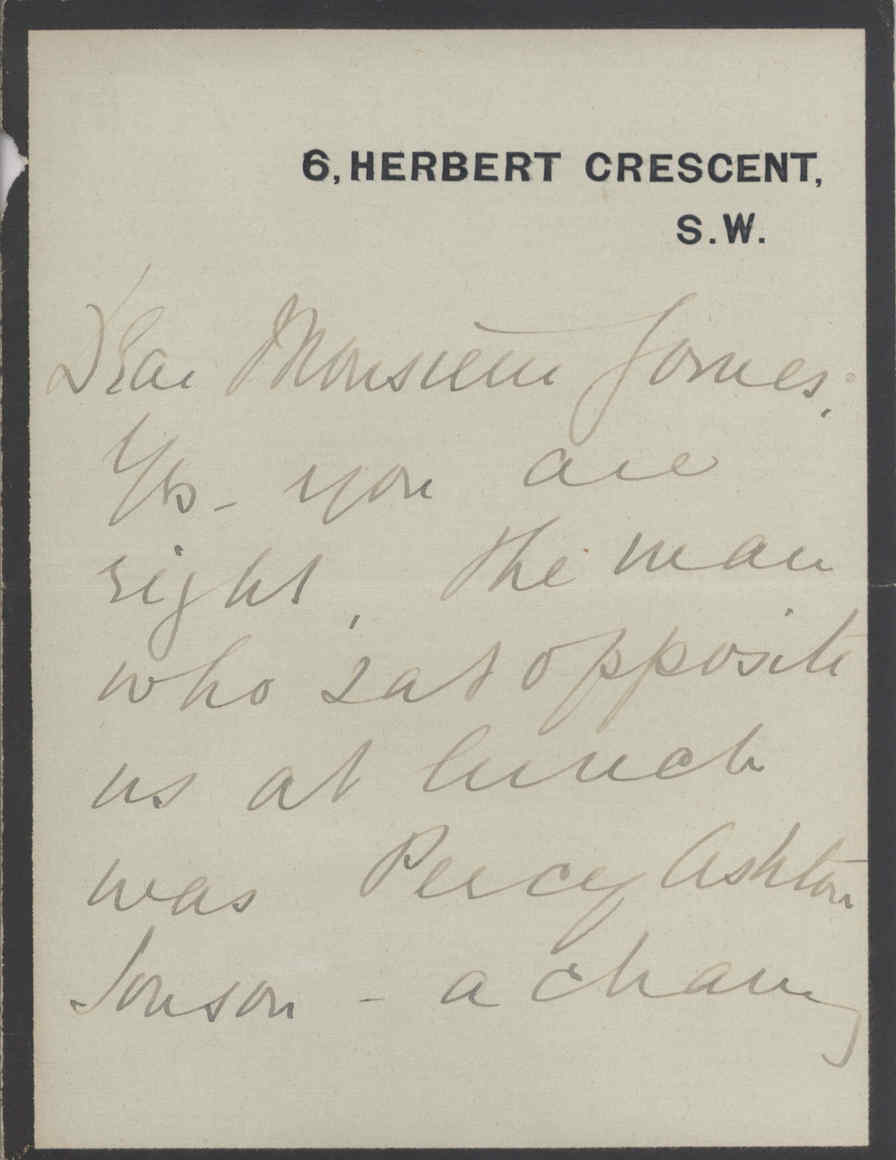 6, HERBERT CRESCENT,
S.W.
Dear Monsieur Gomes,
Yes - you are
right, the man
who sat opposite
us at lunch
was Percy Ashton
Jonson - a charm